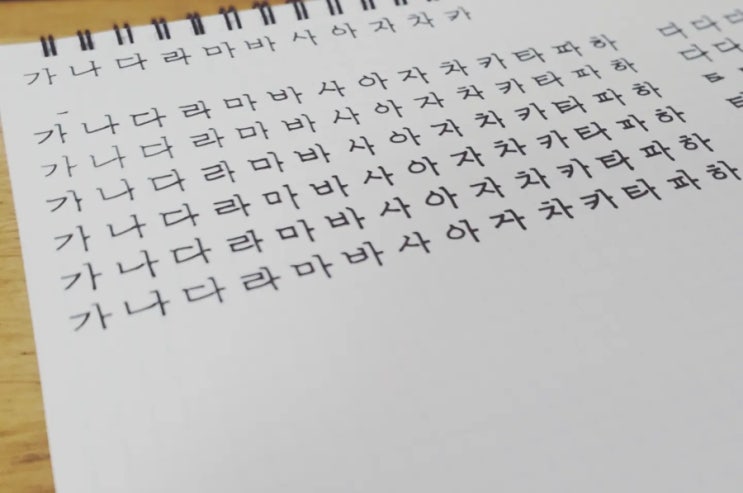 가 나 다 라 마 바 사 아 자 차 카
가 나 다 라 마 바 사 아 자 차 카 타 파 하
가 나 다 라 마 바 사 아 자 차 카 타 파 하
가 나 다 라 마 바 사 아 자 차 카 타 파 하
가 나 다 라 마 바 사 아 자 차 카 타 파 하
가 나 다 라 마 바 사 아 자 차 카 타 파 하
가 나 다 라 마 바 사 아 자 차 카 타 파 하
다 다 다
다 다